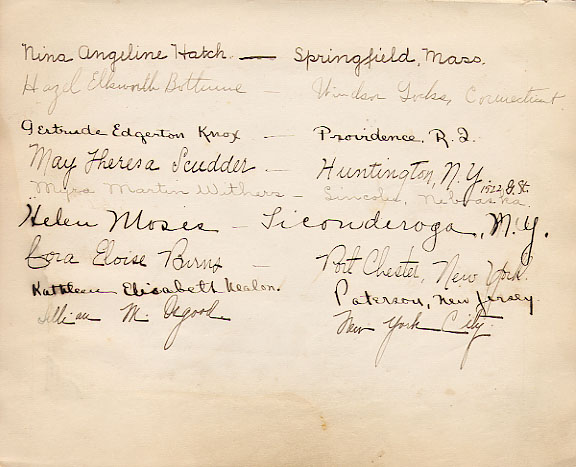 Nina Angeline Hatch. — Springfield, Mass.
Hazel Ellsworth — Windsor Locks, Connecticut.
Gertrude Edgerton Knox — Providence, R. I.
May Theresa Scudder — Huntington, N.Y.
Myra Martin Withers — Lincoln, Nebraska. 1922 St.
Helen Moses — Ticonderoga, N.Y.
Cora Eloise Burns — Port Chester, New York.
Kathleen Elisabeth Nealon. Paterson, New Jersey.
Lillian M. Osgood New York City.